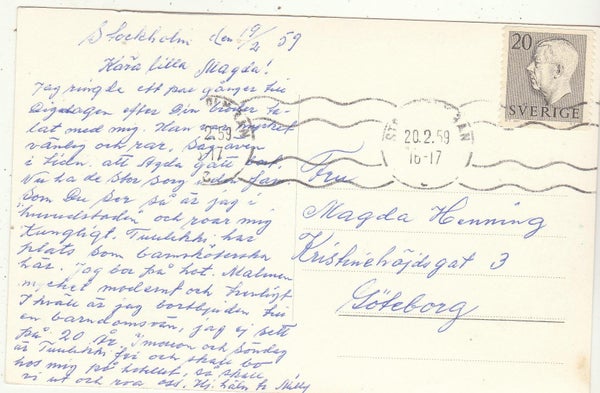 Stockholm den 19/2 59
Kära lilla Magda!
Jag ringde ett par gånger till
Digdagen efter Din broder ta-
lat med mig. Han var mycket
vänlig och rar, såg även
i tidn. att Agda gått bort.
Nu ha de stor sorg
Som Du ser så är jag i
"huvudstaden" och roar mig
Kungligt. Tuulikki har
plats som barnsköterska
här. Jag bor på hot. Malmen
mycket modernt och trevligt.
I kväll är jag bortbjuden till
en barndomsvän, jag ej sett
på 20 år. I morron och söndag
är Tuulikki fri och skall bo
hos mig på hotellet, så skall
vi ut och roa oss. Hj. häln. fr. Milly
20
SVERIGE
2.59
17
20.2.59
16-17
Fru
Magda Henning
Kristinehöjdsgat 3
Göteborg